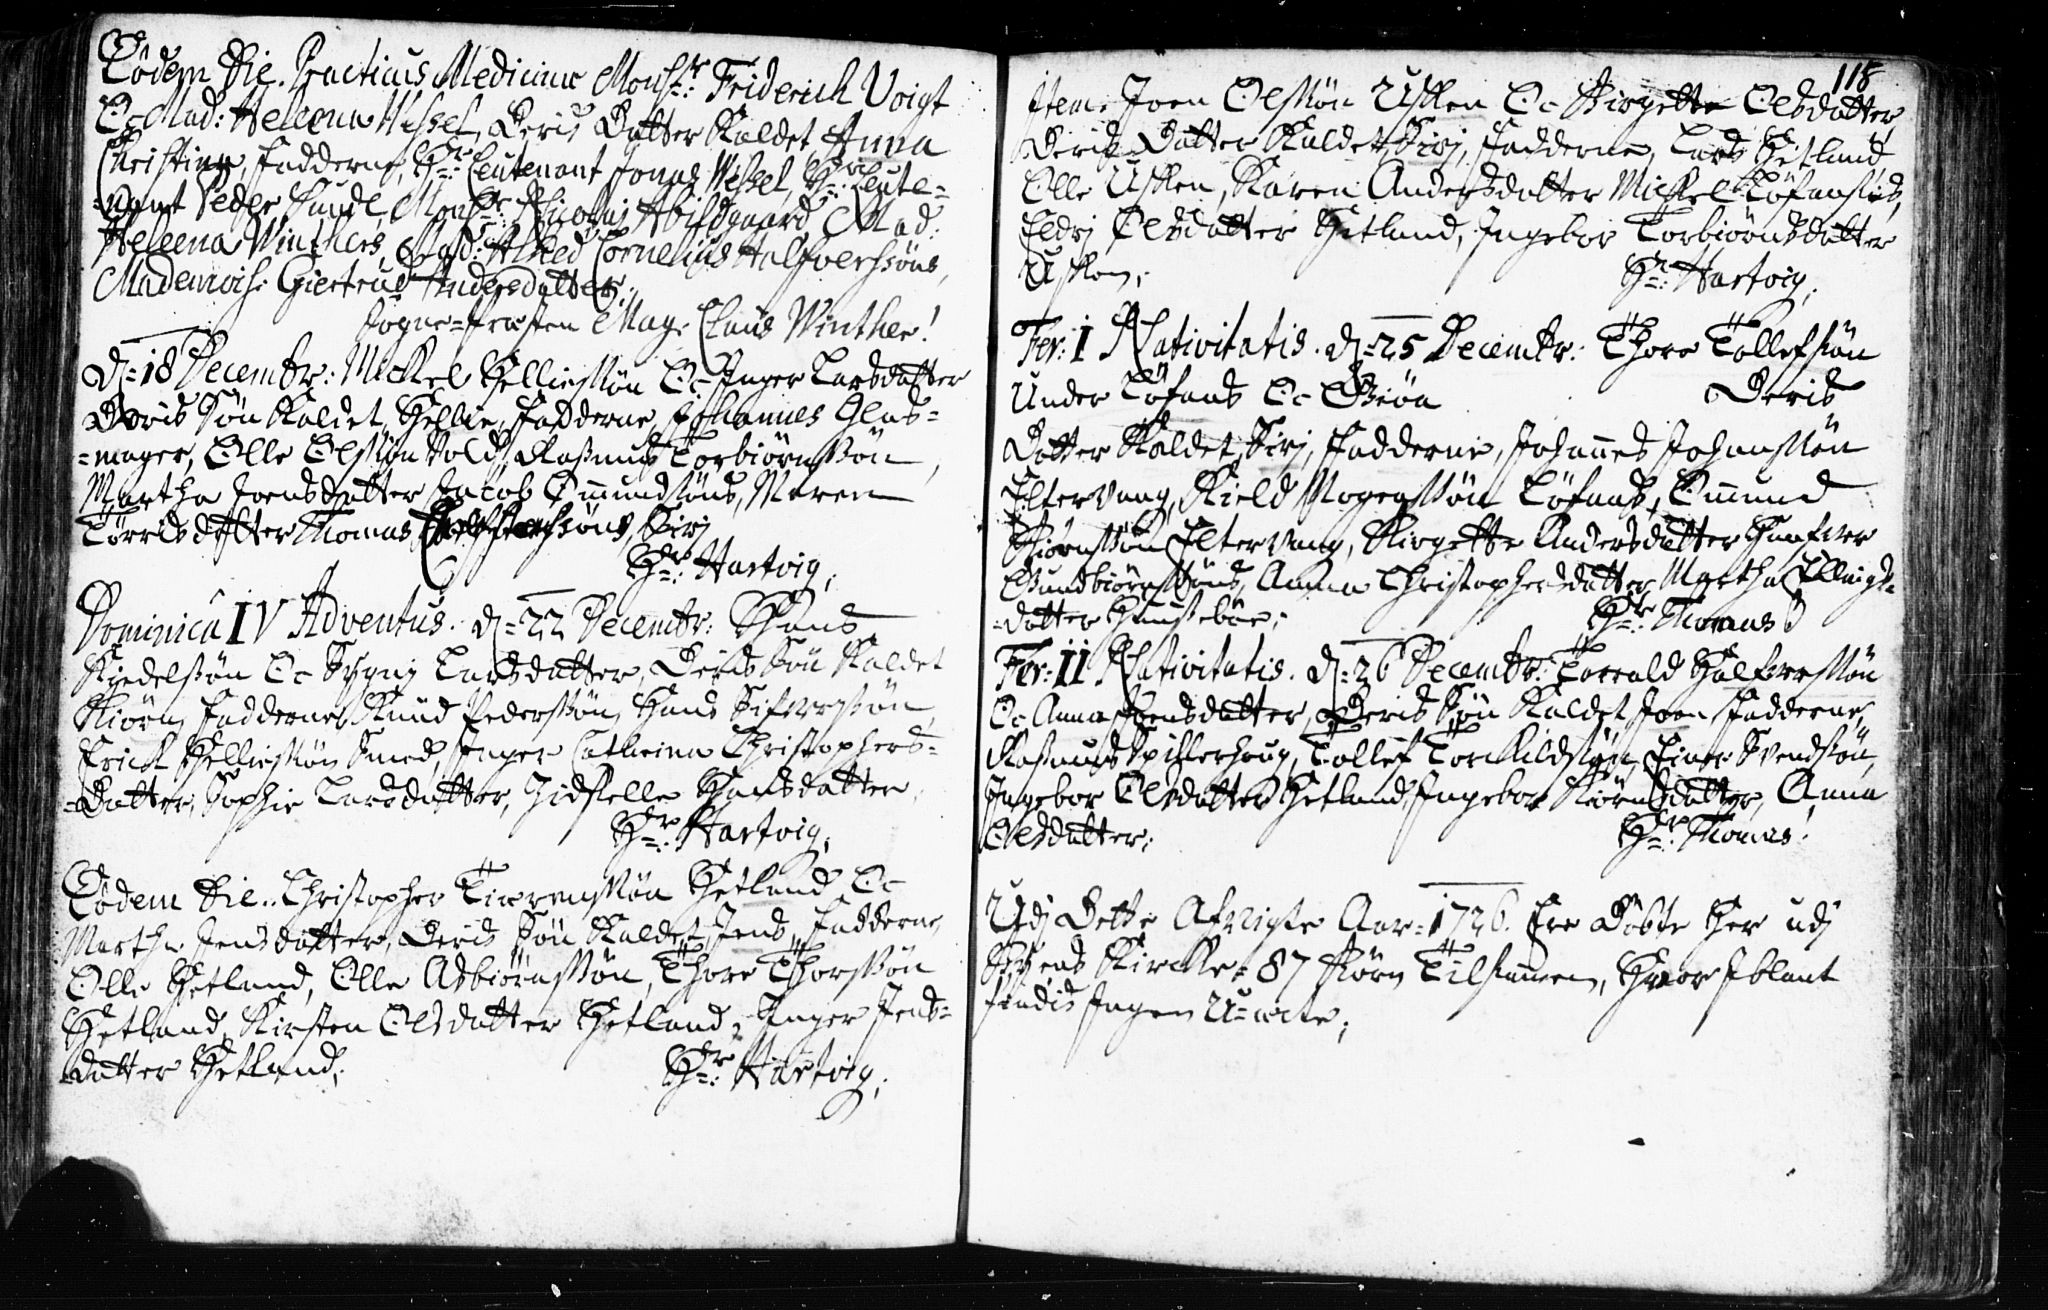 Eodem Die. Practicus Medicinæ Monsr: Friderich Voigt
Oc Mad: Heleena Wessel, Deris Datter Kaldet Anna
Christine, Fadderne, Hr: Leutenant Jonas Wessel, Hr: Leute=
=nant Peder Munde, Monsr: Nicolaj Abildgaard, Mad:
Heleena Winthers, Mad: Alhed Cornelius Halfverssøns,
Mademois: Giertrud Andersdatter,
Sogne=Præsten Mag: Claus Winther!
D=18 Decembr: Mickel Hellissøn Oc Inger Larsdatter
Deris Søn Kaldet Hellie, Fadderne, Johannes Glas=
=mager, Olle Olssøn Vold, Rasmus Torbiørnssøn,
Martha Joensdatter Jacob Omundsøns, Maren
Tørrisdatter Thomas søns, Sirj
Hr: Hartvig;
Dominica IV Adventus. d=22 Decembr: Hans
Kiedelssøn Oc Sygnj Larsdatter, Deris Søn Kaldet
Biørn, Fadderne, Knud Pederssøn, Hans Sifverssøn,
Erick Hellissøn Smed, Inger Catheina Christophers=
=Datter, Sophie Larsdatter, Zidselle Hansdatter,
Hr: Hartvig;
Eodem Die.. Christopher Hetland Oc
Martha Jensdatter, Deris Søn Kaldet Jens, Fadderne,
Olle Hetland, Olle Asbiørnssøn, Thore Thorssøn
Hetland, Kirsten Olsdatter Hetland, Inger Jens=
=datter Hetland;
Hr: Hartvig;
118
Item: Joen Olssøn Usken Oc Birgette Olsdatter,
Deris Datter Kaldet Sirj, Fadderne, Lars Hetland
Olle Usken, Karen Andersdatter Mickel Løfaas,
Eldrj Olsdatter Hetland, Ingebor Torbiørnsdatter
Usken;
Hr: Hartvig;
Fer: I Nativitatis. d=25 Decembr: Thore Tollefsøn
Under Løfaas Oc Deris
Datter Kaldet Sirj, Fadderne, Johannes Johanssøn
Eltervaag, Kield Mogenssøn Løfaas, Omund
Biørnssøn Eltervaag, Birgette Andersdatter Halfver
Gundbiørnssøns, Anna Christophersdatter, Martha Ellings=
=datter Haussebøe;
Hr: Thomas
Fer: II Nativitatis. d=26 Decembr: Torrald Halfverssøn
Oc Anna Joensdatter, Deris Søn Kaldet Joen, Fadderne,
Rasmus Spitterhoug, Tollef Torkildsøn, Einer Svendssøn,
Ingebor Olsdatter Hetland, Ingebor Biørnsdatter, Anna
Olsdatter;
Hr: Thomas!
Udj Dette Afvigte Aar=1726. Ere Døbte Her udj
Byens Kircke=87 Børn Tilsamen, Hvor Iblant
findis Ingen U=ecte;